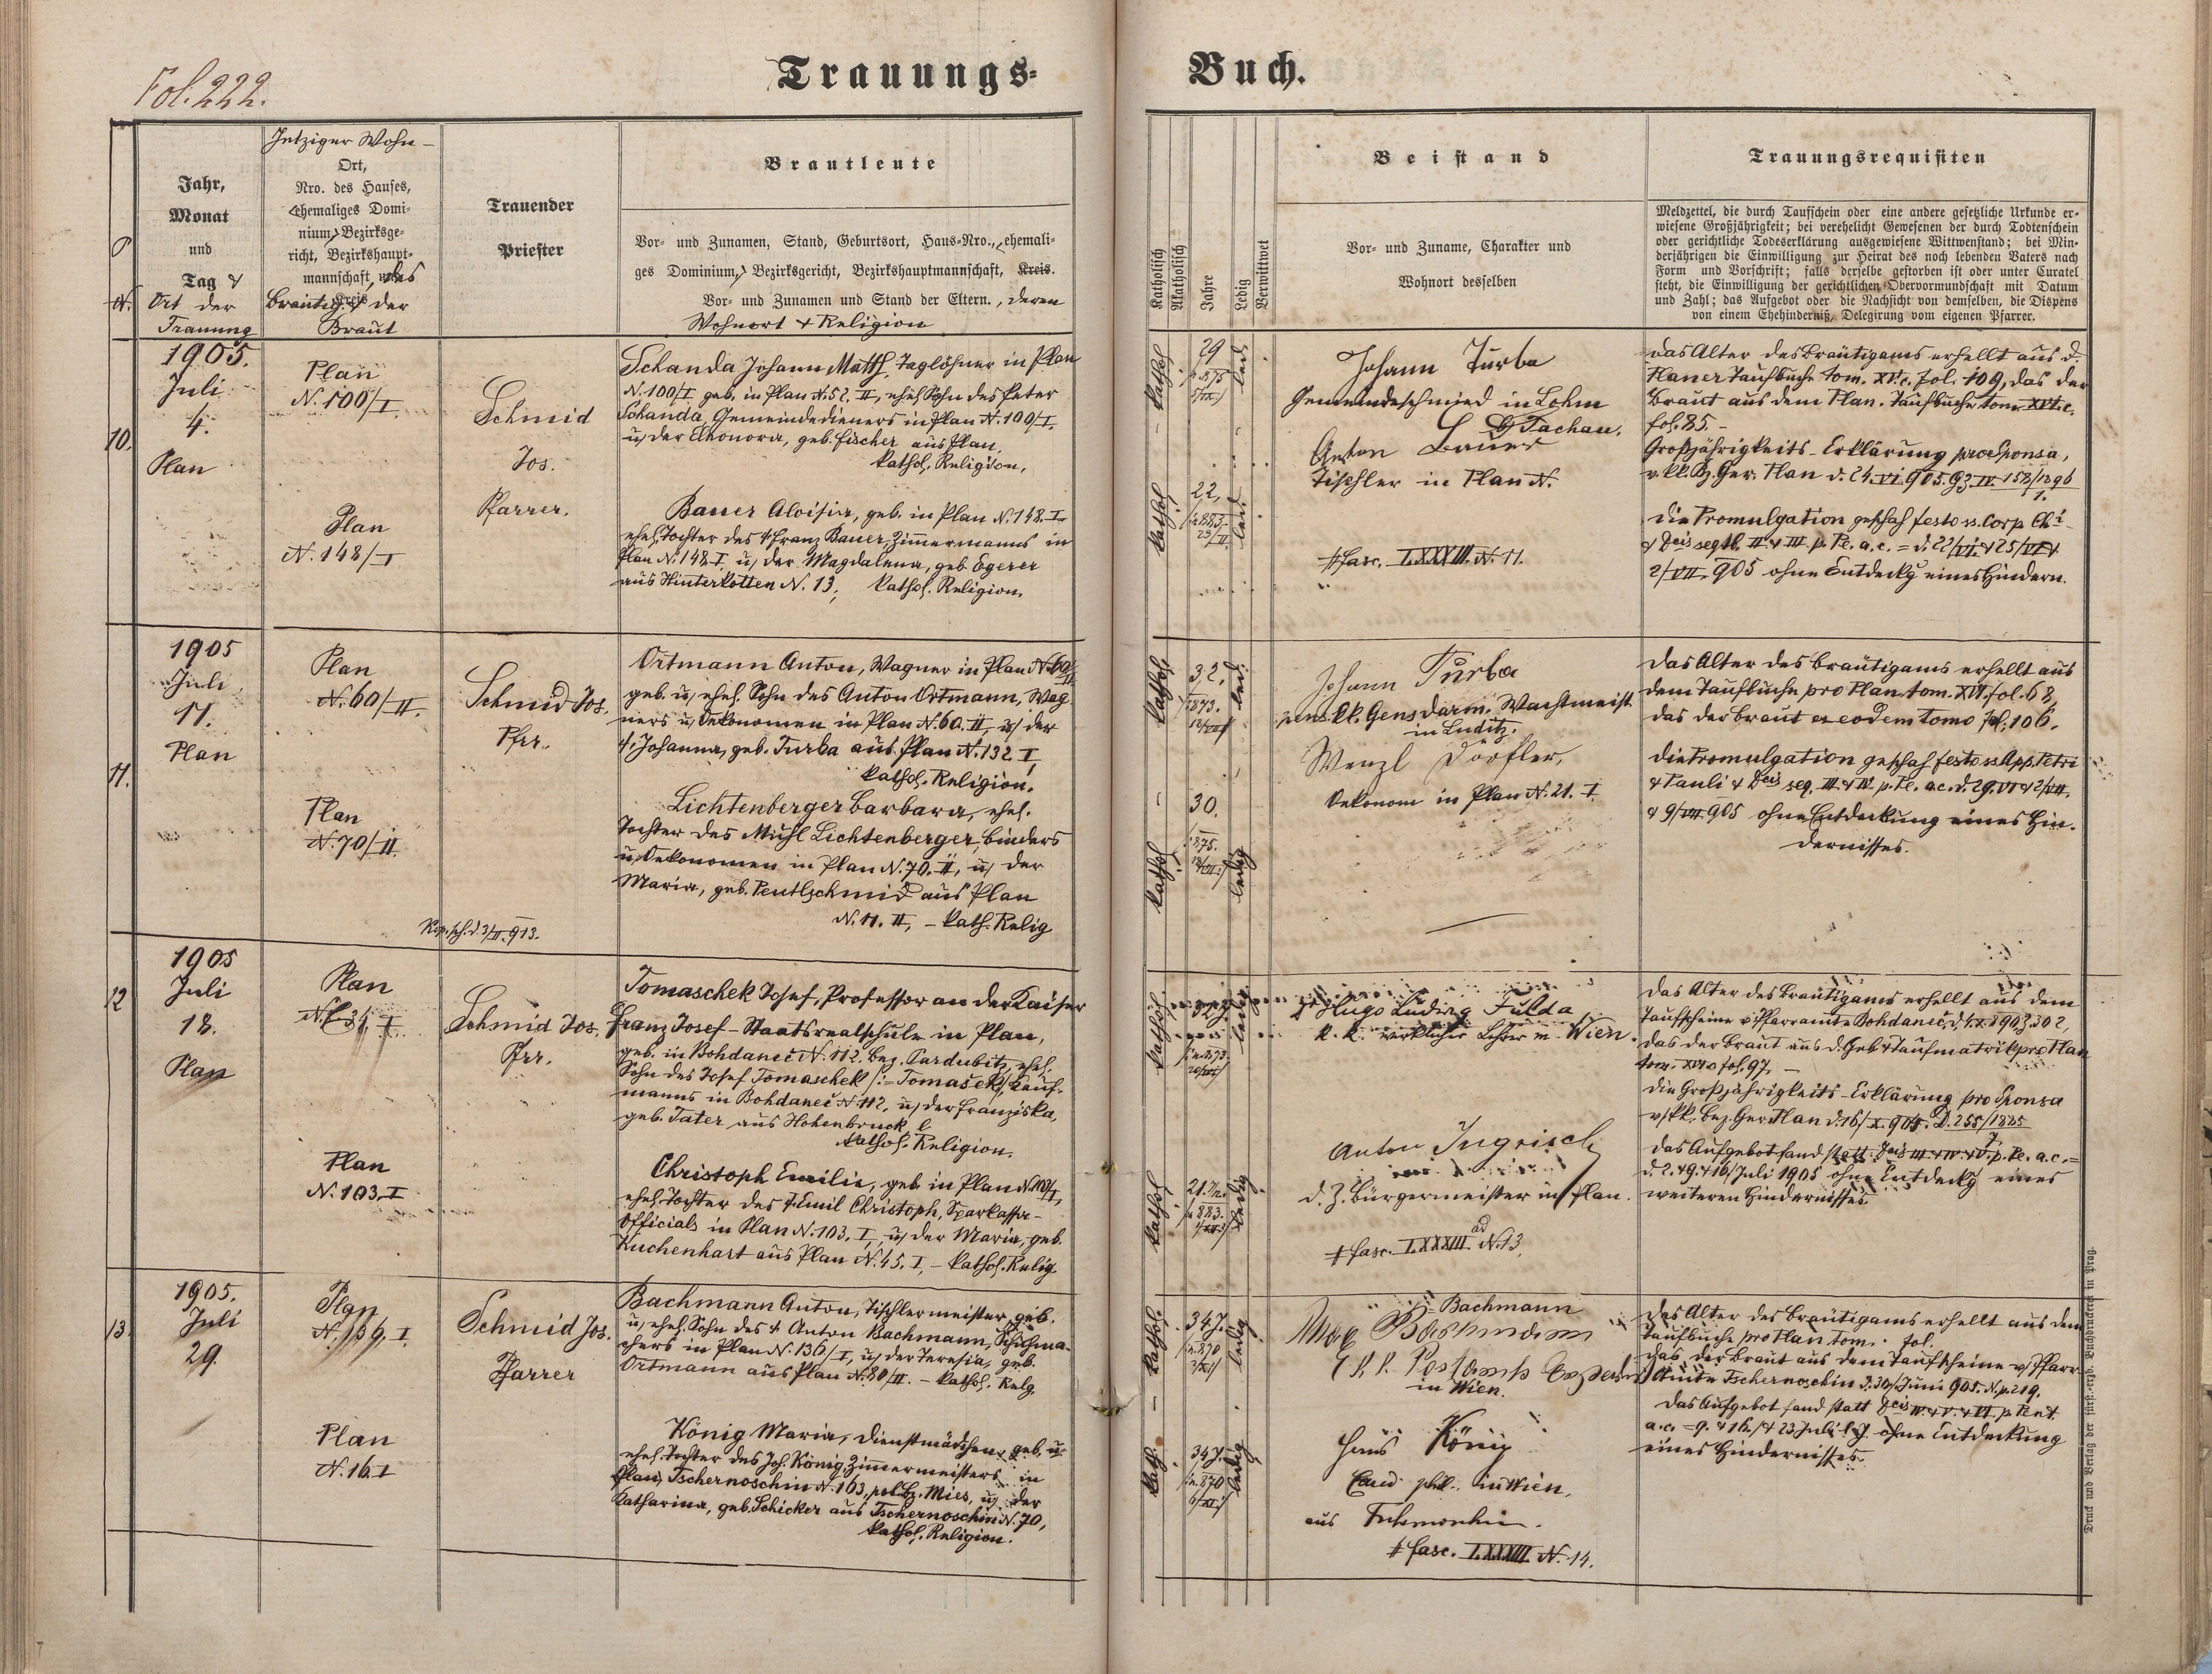 Fol. 222.
Trauungs-
Buch.
Jetziger Wohn-
Ort,
Nro. des Hauses,
ehemaliges Domi-
nium, Bezirksge-
richt, Bezirkshaupt-
mannschaft, des
Bräutig. & der
Braut
Jahr,
Monat
und
Tag &
Ort der
Trauung
Trauender
Priester
Brautleute
Vor- und Zunamen, Stand, Geburtsort, Haus-Nro., ehemali-
ges Dominium, Bezirksgericht, Bezirkshauptmannschaft, Kreis.
Vor- und Zunamen und Stand der Eltern., deren
Wohnort & Religion
Katholisch
Akatholisch
Jahre
Ledig
Verwittwet
Beistand
Vor- und Zuname, Charakter und
Wohnort desselben
Trauungsrequisiten
Meldzettel, die durch Taufschein oder eine andere gesetzliche Urkunde er-
wiesene Großjährigkeit; bei verehelicht Gewesenen der durch Todtenschein
oder gerichtliche Todeserklärung ausgewiesene Wittwenstand; bei Min-
derjährigen die Einwilligung zur Heirat des noch lebenden Vaters nach
Form und Vorschrift; falls derselbe gestorben ist oder unter Curatel
steht, die Einwilligung der gerichtlichen Obervormundschaft mit Datum
und Zahl; das Aufgebot oder die Nachsicht von demselben, die Dispens
von einem Ehehinderniß, Delegirung vom eigenen Pfarrer.
10.
1905.
Juli
4.
Plan
Plan
N. 100/I.
Plan
N. 148/I
Schmid
Jos.
Pfarrer.
Schanda Johann Matth, Taglöhner in Plan
N. 100/I geb. in Plan N. 52. II, ehel. Sohn des Peter
Schanda, Gemeindedieners in Plan N. 100/I.
u, der Eleonora, geb. Fischer aus Plan,
kathol. Religion.
Bauer Aloisia, geb. in Plan N. 148. I
ehel. Tochter des † Franz Bauer, Zimmermanns in
Plan N. 148. I, u, der Magdalena, geb. Egerer
aus Hinterkotten N. 13, kathol. Religion.
kathol
29
led.
kathol
22,
led.
Johann Turba
Gemeindeschmied in Lohm
G Tachau.
Anton Bauer
Tischler in Plan N.
# fasc. LXXXIII. N. 11.
das Alter des Bräutigams erhellt aus d.
Planer Taufbuche tom. XV.c. fol. 109, das der
Braut aus dem Plan. Taufbuche tom. XVI.c.
fol. 85.-
Großjährigkeits-Erklärung pro Sponsa,
v. kk. Bz. Ger. Plan d. 24. VI. 905. G.Z. IV. 158/1896
1.
die Promulgation geschah festo ss. Corp. Chi
& Dcis seq. II. & III p. Pe. a. c. = d. 22/VI. & 25/VI &
2/VII. 905 ohne Entdeckg eines Hindern.
11.
1905
Juli
11.
Plan
Plan
N. 60/II.
Plan
N. 70/II
Schmid Jos.
Pfr.
Kop. sch. d. 3/II. 913.
Ortmann Anton, Wagner in Plan N. 60/II
geb. u, ehel. Sohn des Anton Ortmann, Wag
ners u, Oekonomen in Plan N. 60. II, u, der
†, Johanna, geb. Turba aus Plan N. 132. I,
kathol. Religion.
Lichtenberger Barbara, ehel.
Tochter des Michl Lichtenberger, Binders
u, Oekonomen in Plan N. 70. II, u, der
Maria, geb. Peutlschmid aus Plan
N. 11. II, - kath. Relig
kathol.
32,
led.
kathol
30.
1875.
ledig
Johann Turba
pens. kk. Gensdarm. Wachtmeist.
in Luditz.
Wenzl Dörfler,
Oekonom in Plan N. 21. I.
das Alter des Bräutigams erhellt aus
dem Taufbuche pro Plan tom. XVI. fol. 68,
das der Braut ex eodem tomo fol. 106.
die Promulgation geschah festo ss App. Petri
& Pauli & Dcis seq. III. & IV. p. Pe. a.c. d. 29. VI & 2/VII.
& 9/VII. 905 ohne Entdeckung eines Hin-
dernisses.
12
1905
Juli
18.
Plan
Plan
Plan
N. 103. I
Schmid Jos.
Pfr.
Tomaschek Josef, Professor an der Kaiser
Franz Josef-Staatsrealschule in Plan,
geb. in Bohdaneč N. 112. Bez. Pardubitz, ehel.
Sohn des Josef Tomaschek /:=Tomašek/, Kauf-
manns in Bohdaneč N 112, u, der Franziska,
geb. Tater aus Hohenbruck,
kathol. Religion.
Christoph Emilie, geb. in Plan N. 103/I,
ehel. Tochter des † Emil Christoph, Sparkassa-
Officials in Plan N. 103. I, u, der Maria, geb.
Kuchenhart aus Plan N. 45. I, - kathol. Relig.
kathol.
32 J.
ledig
kathol
ledig
Dr Hugo Ludwig Fulda
k. k. wirklicher Lehrer in Wien.
Anton Ingrisch
d. Z. Bürgermeister in Plan.
ad
# fasc. LXXXIII. N. 13.
das Alter des Bräutigams erhellt aus dem
Taufscheine v. Pfarramte Bohdaneč, d. 4. X. 190, Z. 302,
das der Braut aus d. Geb. & Taufmatrik pro Plan
tom. XVI. fol. 97. -
die Großjährigkeits-Erklärung pro Sponsa
v, kk. Bez. Ger. Plan d. 16/X. 904. D. 255/1885
7.
das Aufgebot fand statt Dcis III. & IV. & V. p. Pe. a.c. =
d. 2. & 9. & 16/Juli 1905 ohne Entdeckg eines
weiteren Hindernisses.
13.
1905.
Juli
29.
Plan
N. 136. I
Plan
N. 16. I
Schmid Jos.
Pfarrer
Bachmann Anton, Tischlermeister, geb.
u, ehel. Sohn des † Anton Bachmann, Schuhma-
chers in Plan N. 136/I, u, der Teresia, geb.
Ortmann aus Plan N. 80/II. - kathol. Relg.
König Maria, Dienstmädchen, geb. u,
ehel. Tochter des Joh. König, Zimmermeisters in
Plan, Tschernoschin N. 163, pol. Bz. Mies, u, der
Katharina, geb. Schicker aus Tschernoschin N. 70,
kathol. Religion.
kathol.
34 J.
ledig
kath.
34 J.
ledig
= Bachmann
Max Bachmann
in Wien.
Hans König
Cand. phil. in Wien,
aus Tschernoschin.
# fasc. LXXXIII. N. 14.
das Alter des Bräutigams erhellt aus dem
Taufbuche pro Plan tom. fol.
das der Braut aus dem Taufscheine v, Pfarr-
amte Tschernoschin d. 30/Juni 905. N. p. 219.
das Aufgebot fand statt Dcis IV. & V. & VI. p. Pent.
a.c. = 9. & 16. & 23. Juli l. J. ohne Entdeckung
eines Hindernisses.
Druck und Verlag der fürst.-erzb. Buchdruckerei in Prag.